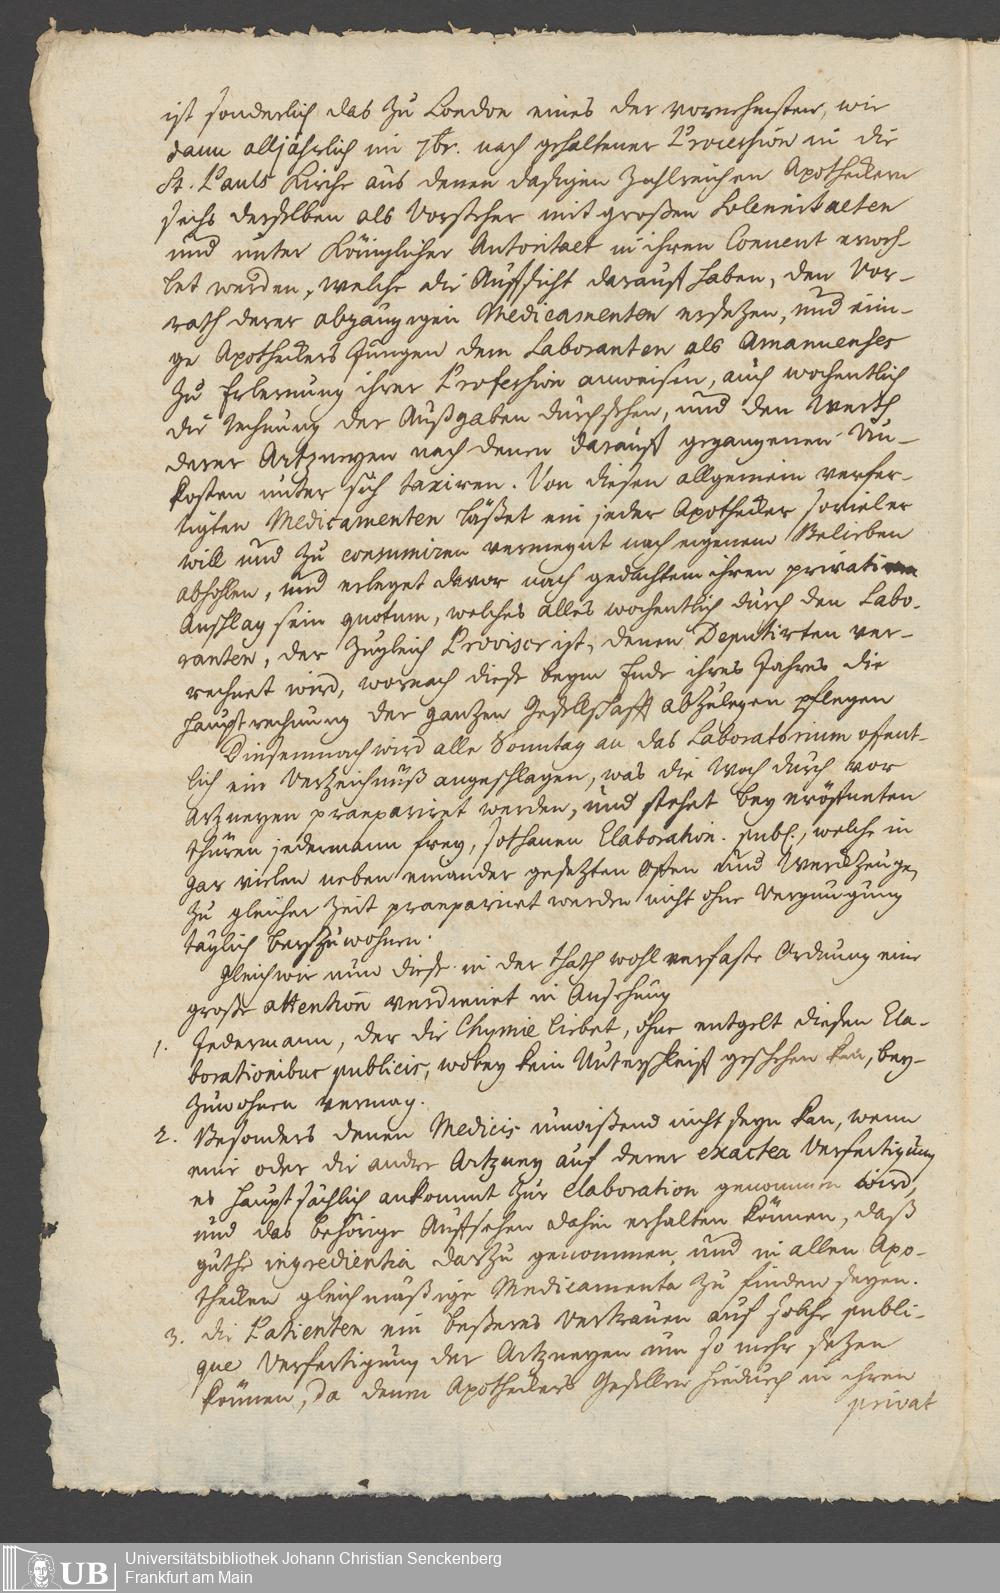 ist sonderlich das zu London eines der vornehmsten, wie
dann alljährlich im 7br. nach gehaltener Procession in die
St. Pauls Kirche aus denen dasigen zahlreichen Apotheckern
sechs derselben als Vorsteher mit großen Solennitaeten
und unter Königlicher Autoritaet in ihren Convent erweh-
let werden, welche die Auffsicht darauff haben, den Vor-
rath derer abgängigen Medicamenten ersetzen, und eini-
ge Apotheckers Jungen dem Laboranten als Amanuenses
zu Erlernung ihrer Profession anweisen, auch wochentlich
die Rechnung der Außgaben durchsehen, und den Werth
derer Artzneyen nach denen darauff gegangenen Un-
kosten unter sich taxiren. Von diesen allgemein verfer-
tigten Medicamenten läßet ein jeder Apothecker so vieler
will und zu consumiren vermeynt nach eigenem Belieben
abhohlen, und erleget davor nach gedachtem ihren privat
Anschlag sein quotum, welches alles wochentlich durch den Labo-
ranten, der zugleich Provisor ist, denen Deputirten ver-
rechnet wird, wornach diese beym Ende ihres Jahres die
Hauptrechnung der gantzen Gesellschafft abzulegen pflegen
Diesemnach wird alle Sonntag an das Laboratorium offent-
lich ein Verzeichnüß angeschlagen, was die Woch durch vor
Artzneyen praepariret werden, und stehet bey eröffneten
Thüren jedermann frey, sothanen Elaboration. publ., welche in
gar vielen neben einander gesetzten Offen und Werckzeuge,
zu gleicher Zeit praepariret werden nicht ohne Vergnügung
täglich beyzuwohnen.
Gleichwie nun diese in der That wohl verfaste Ordnung eine
große attention verdienet in Ansehung
1. Jedermann, der die Chymie liebet, ohne entgelt diesen Ela-
borationibus publicis, wobey kein Unterschleiff geschehen kan, bey-
zuwohnen vermag.
2. Besonders denen Medicis unwißend nicht seyn kan, wenn
eine oder die andre Artzney auf derer exacten Verfertigung
es hauptsächlich ankommt zur elaboration genommen wird,
und das behörige Auffsehen dahin erhalten können, daß
guthe ingredientia darzu genommen, und in allen Apo-
thecken gleichmäßige Medicamenta zu finden seyen.
3. die Patienten ein beßeres Vertrauen auf solche publi-
que Verfertigung der Artzneyen um so mehr setzen
können, da denen Apotheckers Gesellen hiedurch in ihren
privat
UB
Universitätsbibliothek Johann Christian Senckenberg
Frankfurt am Main